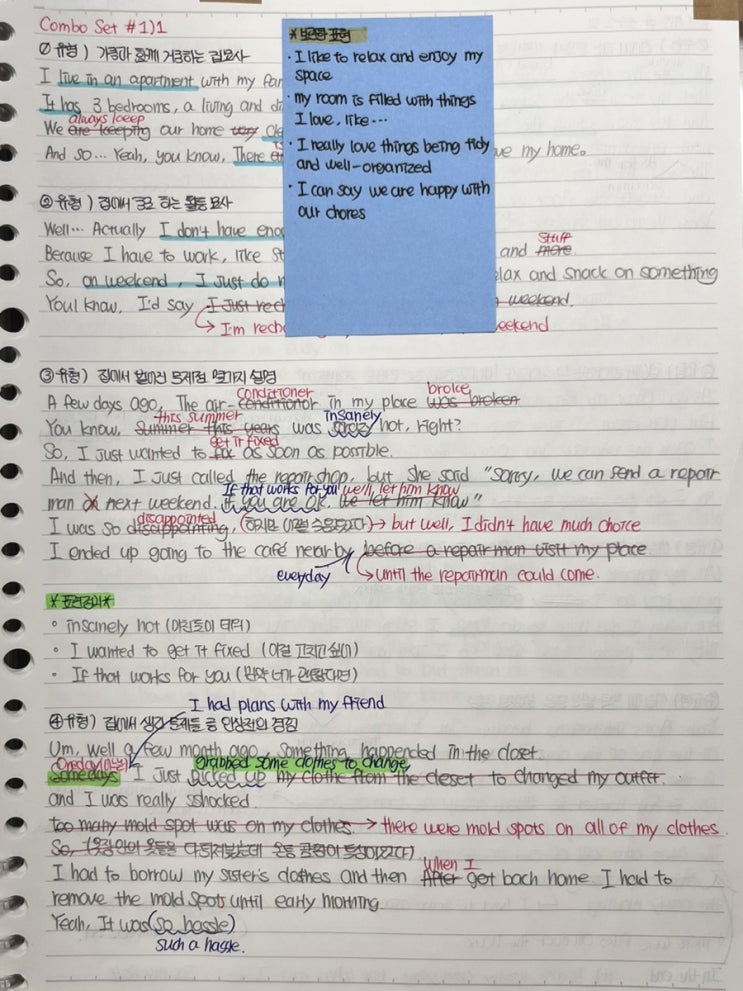 Combo Set #1)1
① 유형) 가족과 함께 거주하는 집묘사
I live in an apartment with my fam
It has 3 bedrooms, a living and di
always keep
We are keeping our home very cle
And so... Yeah, you know, There ve my home。
※ 보편한 표현
· I like to relax and enjoy my
space
· my room is filled with things
I love, like...
· I really love things being tidy
and well-organized
· I can say we are happy with
our chores
② 유형) 집에서 주로 하는 활동 묘사
Well... Actually I don't have enou
stuff
Because I have to work, like st and more
So, on weekend, I Just do n lax and snack on something
You know, I'd say I Just rech weekend.
→ I'm recha eekend
③ 유형) 집에서 벌어진 문제점 몇가지 설명
conditioner broke
A few days ago, The air-conditionor in my place was broken
this summer insanely
You know, summer this years was hot, right?
get it fixed
So, I just wanted to fix as soon as possible.
And then, I Just called the repair shop, but she said "Sorry, we can send a repair
If that works for you well, let him know
man next weekend. if you are ok, let him know"
disappointed
I was so disappointing, (하지만 어쩔 수 없었다) → but well, I didn't have much choice
I ended up going to the café nearby before a repairman visit my place
everyday → until the repairman could come.
※ 표현정리※
◦ insanely hot (미친듯이 더워)
◦ I wanted to get it fixed (이걸 고치고 싶어)
· If that works for you (만약 너가 괜찮다면)
I had plans with my friend
④ 유형) 집에서 생긴 문제들 중 인상적인 경험
Um, well a few month ago, something happended in the closet
Oneday(어느날) Grabbed some clothes to change
somedays I Just picked up my clothe from the closet to changed my outfit.
and I was really sshocked.
too many mold spot was on my clothes. → there were mold spots on all of my clothes.
So,
When I
I had to borrow my sister's clothes and then After got bach home. I had to
remove the mold spots until early morning.
Yeah, It was (so hassle)
such a hassle.